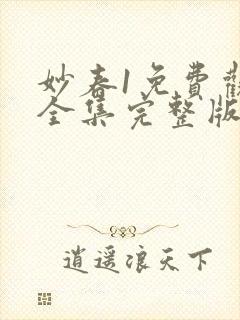 妙春1免費觀
全集完整版
逍遥浪天下